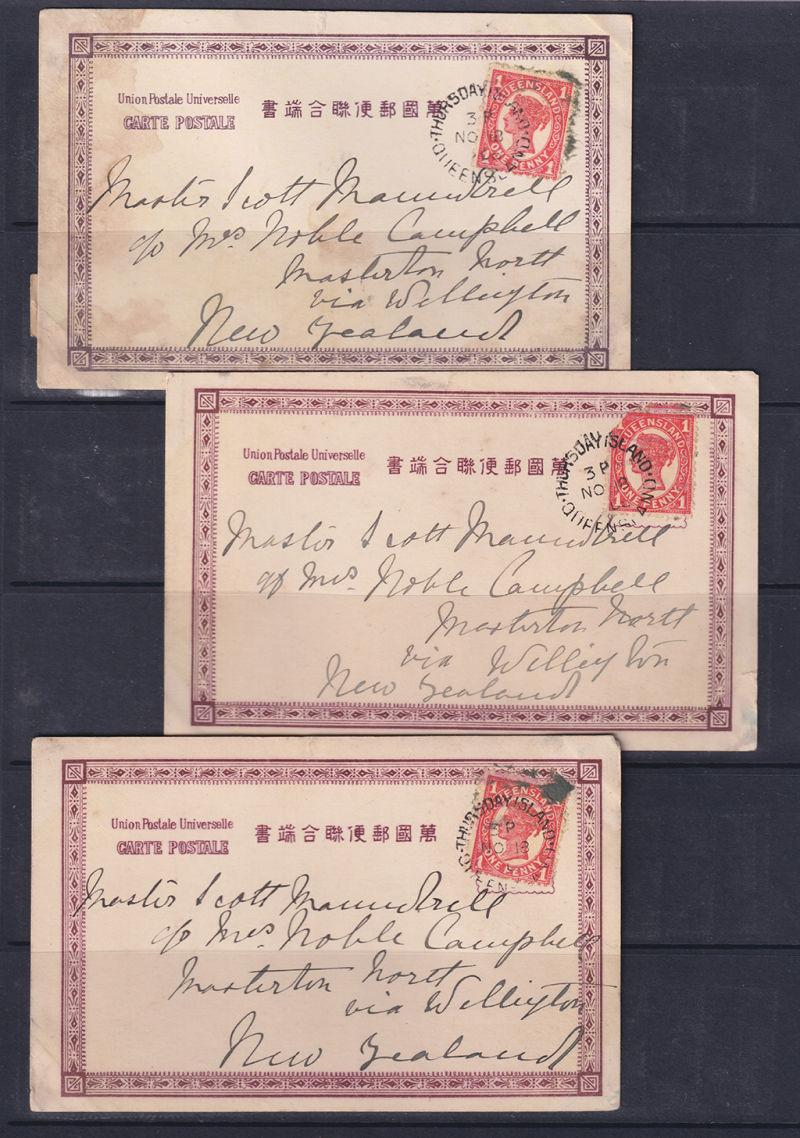 Union Postale Universelle
CARTE POSTALE
萬國郵便聯合端書
1 QUEENSLAND 1
ONE PENNY 1
THURSDAY ISLAND
3 P
NO 18
QUEENSLAND
Master Scott Maundrell
c/o Mrs Noble Campbell
Masterton North
via Wellington
New Zealand
Union Postale Universelle
CARTE POSTALE
萬國郵便聯合端書
QUEENSLAND 1
ONE PENNY 1
THURSDAY ISLAND
3 P
NO
QUEENSLAND
Master Scott Maundrell
c/o Mrs Noble Campbell
Masterton North
via Wellington
New Zealand
Union Postale Universelle
CARTE POSTALE
萬國郵便聯合端書
1 QUEENSLAND
ONE PENNY 1
THURSDAY ISLAND
3 P
NO 18
Master Scott Maundrell
c/o Mrs Noble Campbell
Masterton North
via Wellington
New Zealand